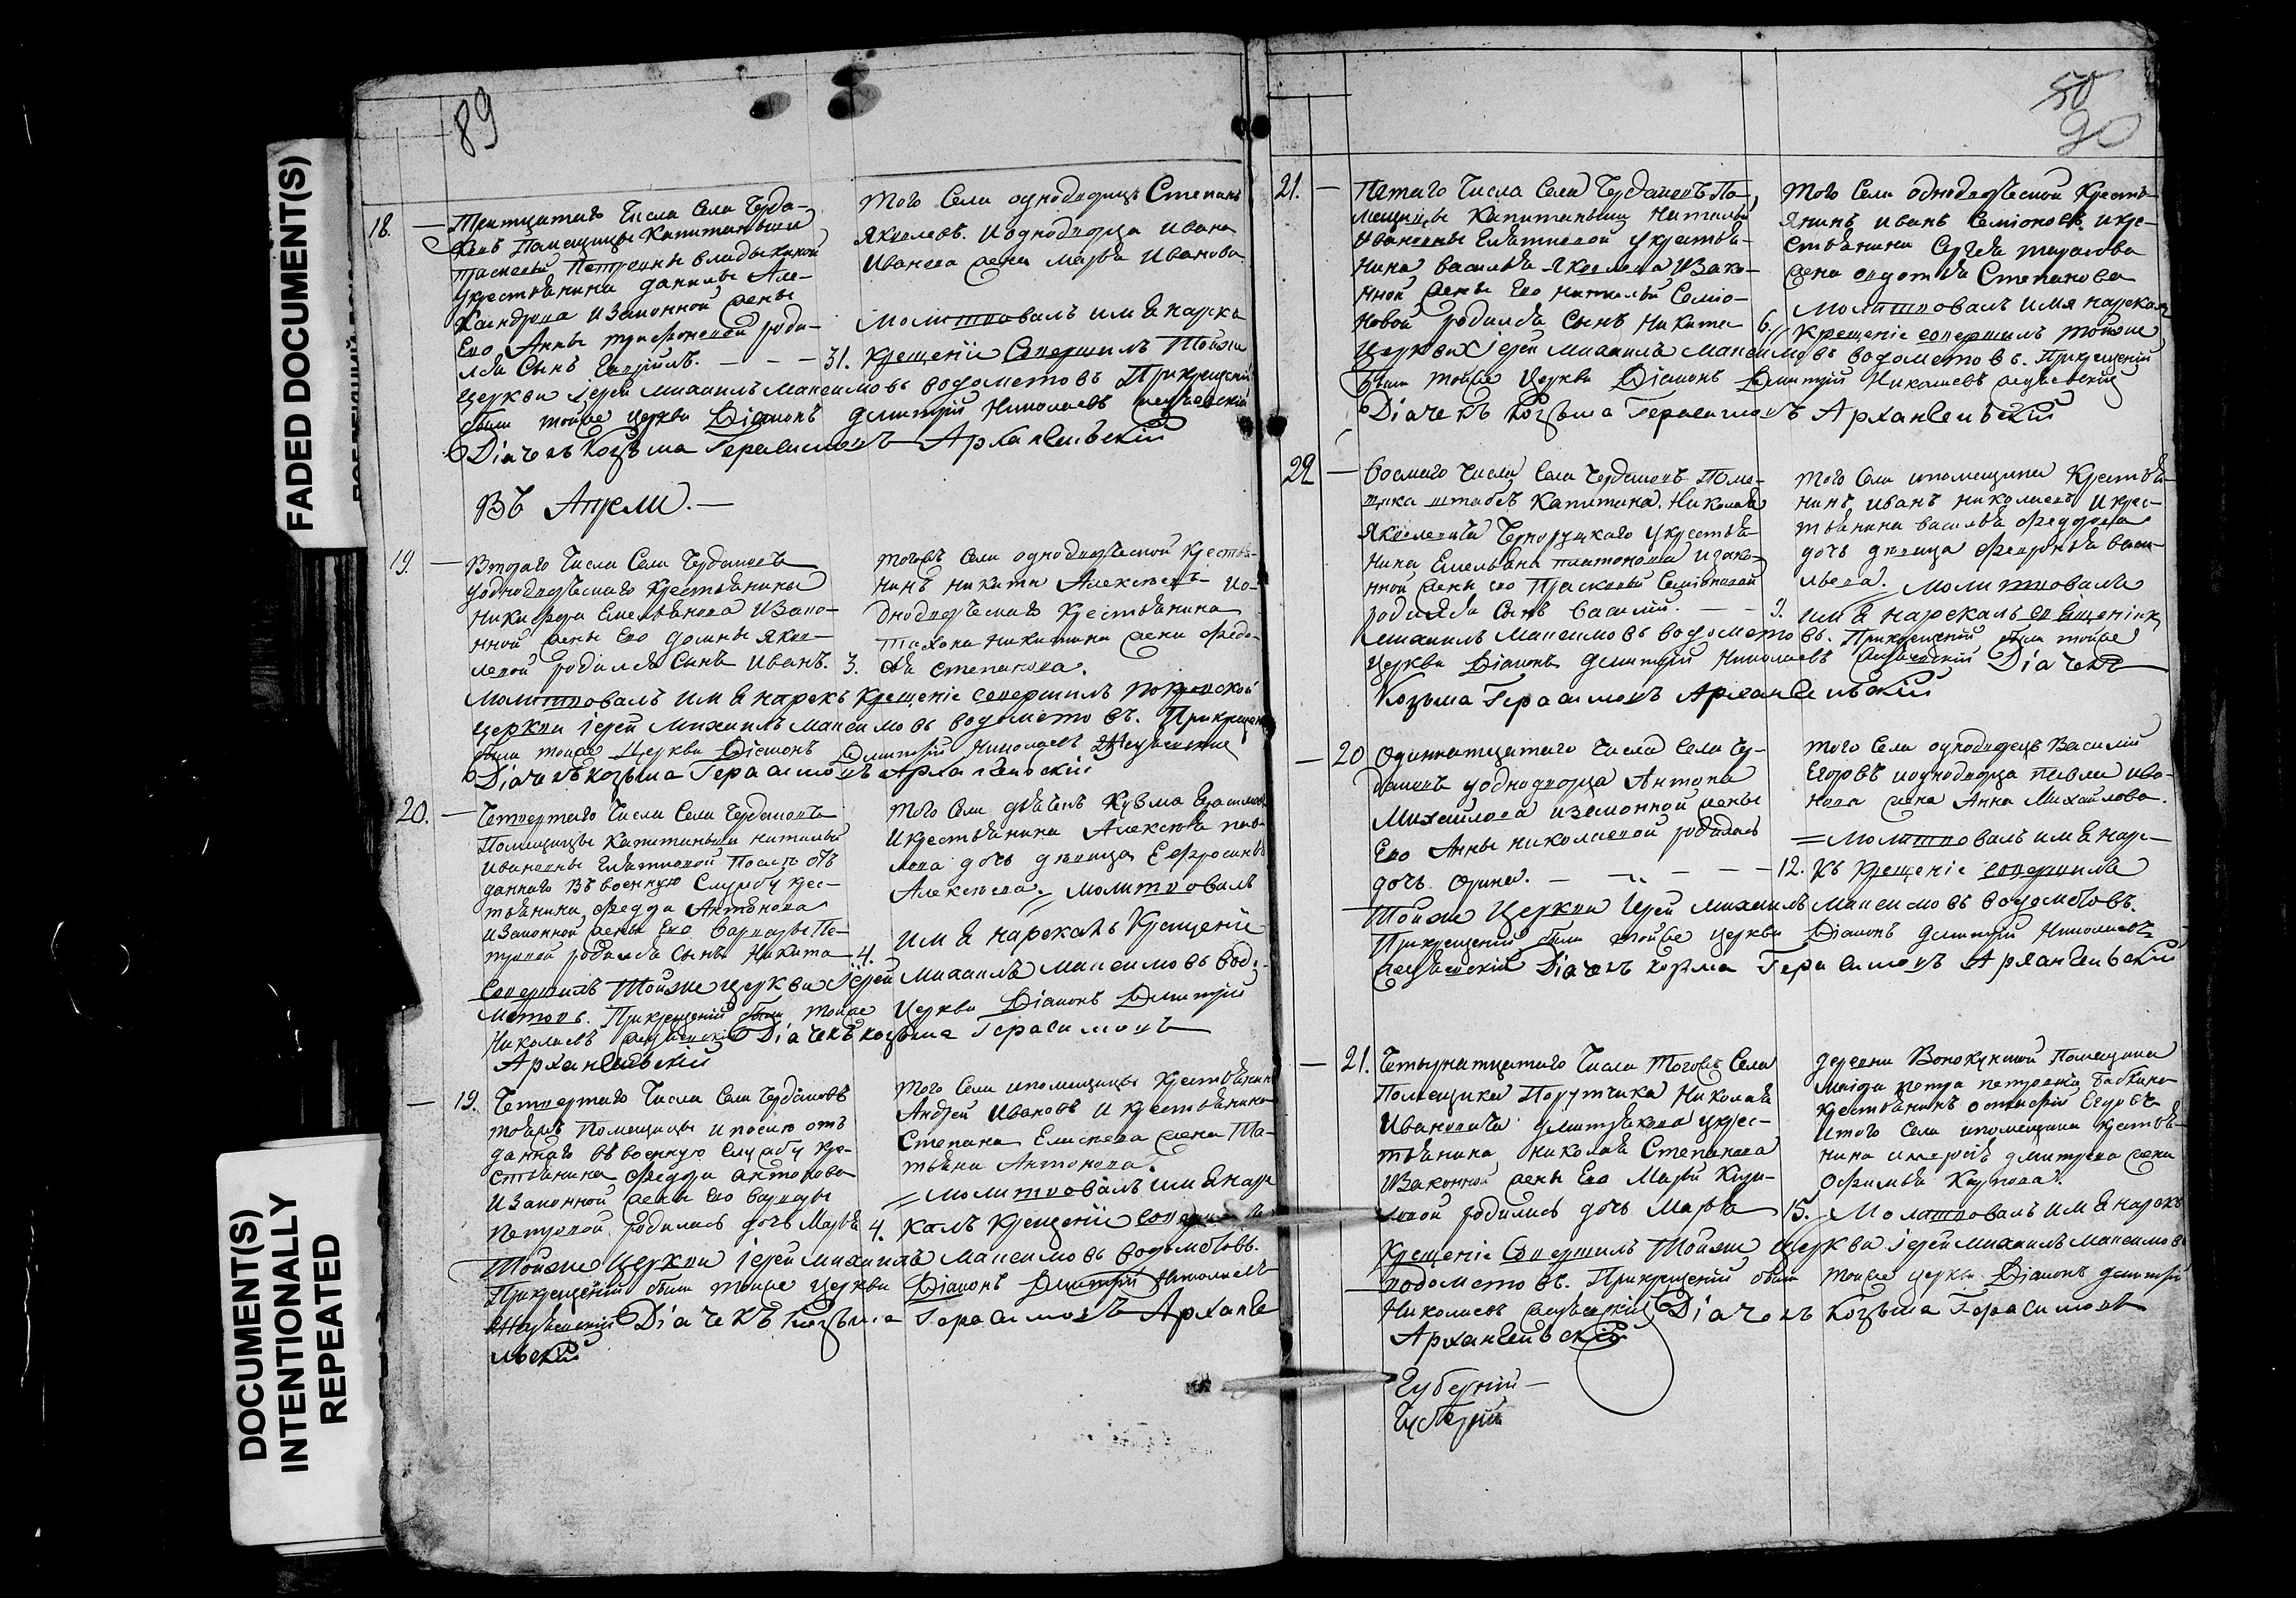 FADED DOCUMENT(S)
DOCUMENT(S)
INTENTIONALLY
REPEATED
89
18. — Тритцатаго Числа Села Чурда-
ковъ Помещицы Капитанши
Прасковьи Петровны Владыкиной
у крестьянина Данилы Але-
ксандрова и законной жены
Его Анны Трифоновой роди-
лся Сынъ — — — 31.
того Села однодворецъ Степанъ
Яковлевъ. и однодворца Ивана
Иванова жена Марья Иванова
Молитвовалъ имя нареклъ
Крещеніи Совершилъ Тойже
церкви іерей Михаилъ Максимовъ Водометовъ При крещеніи
были тойже церкви Діаконъ Дмитрій Николаевъ
Діачекъ Козьма Герасимовъ Архангельскій
Въ Апрели. —
19. — Втораго Числа Села
у однодворческаго Крестьянина
Никифора Емельянова и зако-
нной жены Его Домны Яков-
левой родился Сынъ Иванъ. 3.
тогожъ Села однодворческой Крестья-
нинъ Никита Алексеевъ и о-
днодворческаго Крестьянина
Никитина жена Федо-
сья Степанова.
Молитвовалъ имя нарекъ Крещеніе совершилъ Покровской
церкви іерей Михаилъ Максимовъ Водометовъ. При крещеніи
были тойже Церкви Діаконъ Дмитрій Николаевъ
Діачекъ Козьма Герасимовъ Архангельскій
20. — Четвертаго Числа Села
Помещицы Капитанши Натальи
Ивановны Гладковой После от-
даннаго въ военную Службу крес-
тьянина Федора Антонова
и Законной жены Его Варвары Пе-
тровой родился Сынъ Никита 4.
того Села Кузма Герасимовъ
и крестьянина Алексея Пав-
лова дочь девица Ефросинья
Алексеева. Молитвовалъ
имя нарекалъ Крещеніе
Совершилъ Тойже церкви Іерей Михаилъ Максимовъ Водо-
метовъ. При крещеніи были тойже Церкви Діаконъ Дмитрій
Николаевъ Діачекъ Козьма Герасимовъ
Архангельскій
— 19. Четвертаго Числа Села
тойже Помещицы и после от-
даннаго въ военную Службу кре-
стьянина Федора Антонова
и Законной жены Его Варвары
Петровой родилась дочь Марья 4.
того Села и помещицы Крестьянинъ
Андрей Ивановъ и Крестьянина
Степана Елисеева жена Та-
тьяна Антонова.
Молитвовалъ имя наре
калъ Крещеніи совершилъ
Тойже Церкви іерей Михаилъ Максимовъ Водометовъ.
При крещеніи были тойже церкви Діаконъ Дмитрій Николаевъ
Діачекъ Козьма Герасимовъ Арханге
льскій
50
90
21. — Пятаго Числа Села По-
мещицы Капитанши Натальи
Ивановны Гладковой у крестья-
нина Василья Яковлева и зако-
нной жены Его Натальи Семіо-
новой родился Сынъ Никита 6.
того Села однодворческой Кресть-
янинъ Иванъ Семіоновъ. и кре-
стьянина Сергея Тарасова
жена Авдотья Степанова
Молитвовалъ имя нарекалъ
Крещеніе совершилъ тойже
Церкви Іерей Михаилъ Максимовъ Водометовъ. При крещеніи
были тойже Церкви Діаконъ Дмитрій Николаевъ
Діачекъ Козьма Герасимовъ Архангельскій
22 — Восмаго Числа Села Поме-
щика штабсъ Капитана Николая
Яковлевича Чернорутскаго у крестья-
нина Емельяна Платонова и зако-
нной жены его Прасковьи Семіоновой
родился Сынъ Василій. — — 9.
того Села и помещика Крестья-
нинъ Иванъ Николаевъ и крес-
тьянина Василья Федорова
дочь девица Февронья Васи-
льева. Молитвовалъ
имя нарекалъ
Михаилъ Максимовъ Водометовъ. При крещеніи были тойже
Церкви Діаконъ Дмитрій Николаевъ Діачекъ
Козьма Герасимовъ Архангельскій
— 20 Одиннатцатаго Числа Села Чур-
даковъ у однодворца Антона
Михайлова и законной жены
Его Анны Николаевой родилась
дочь Орина. — — — — 12.
того Села однодворецъ Василій
Егоровъ и однодворца Павла Ива-
нова жена Анна Михайлова.
Молитвовалъ имя наре-
къ Крещеніе совершилъ
Тойже Церкви Іерей Михаилъ Максимовъ Водометовъ.
При крещеніи были тойже церкви Діаконъ Дмитрій Николаевъ
Діачекъ Козма Герасимовъ Архангельскій
— 21. Четырнатцатаго Числа Тогожъ Села
Помещика Порутчика Николая
Ивановича у крес-
тьянина Николая Степанова
и Законной жены Его Марьи
родилась дочь Марья 15.
деревни Помещика
Маіора Петра Петровича Бабкина
крестьянинъ Егоровъ
и того Села и помещика крестья-
нина Дмитрева жена
Офимья Карпова.
Молитвовалъ имя нарекъ
Крещеніе Совершилъ Тойже Церкви іерей Михаилъ Максимовъ
Водометовъ. При крещеніи были тойже церкви Діаконъ Дмитрій
Николаевъ Діачекъ Козьма Герасимовъ
Архангельскій
Губерніи —
Губерніи